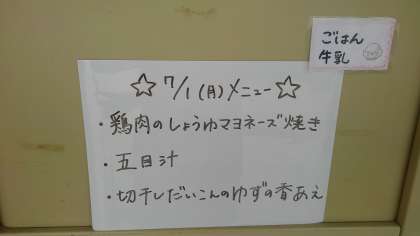 ごはん
牛乳
☆ 7/1(月)メニュー☆
・鶏肉のしょうゆマヨネーズ焼き
・五目汁
・切干しだいこんのゆずの香あえ